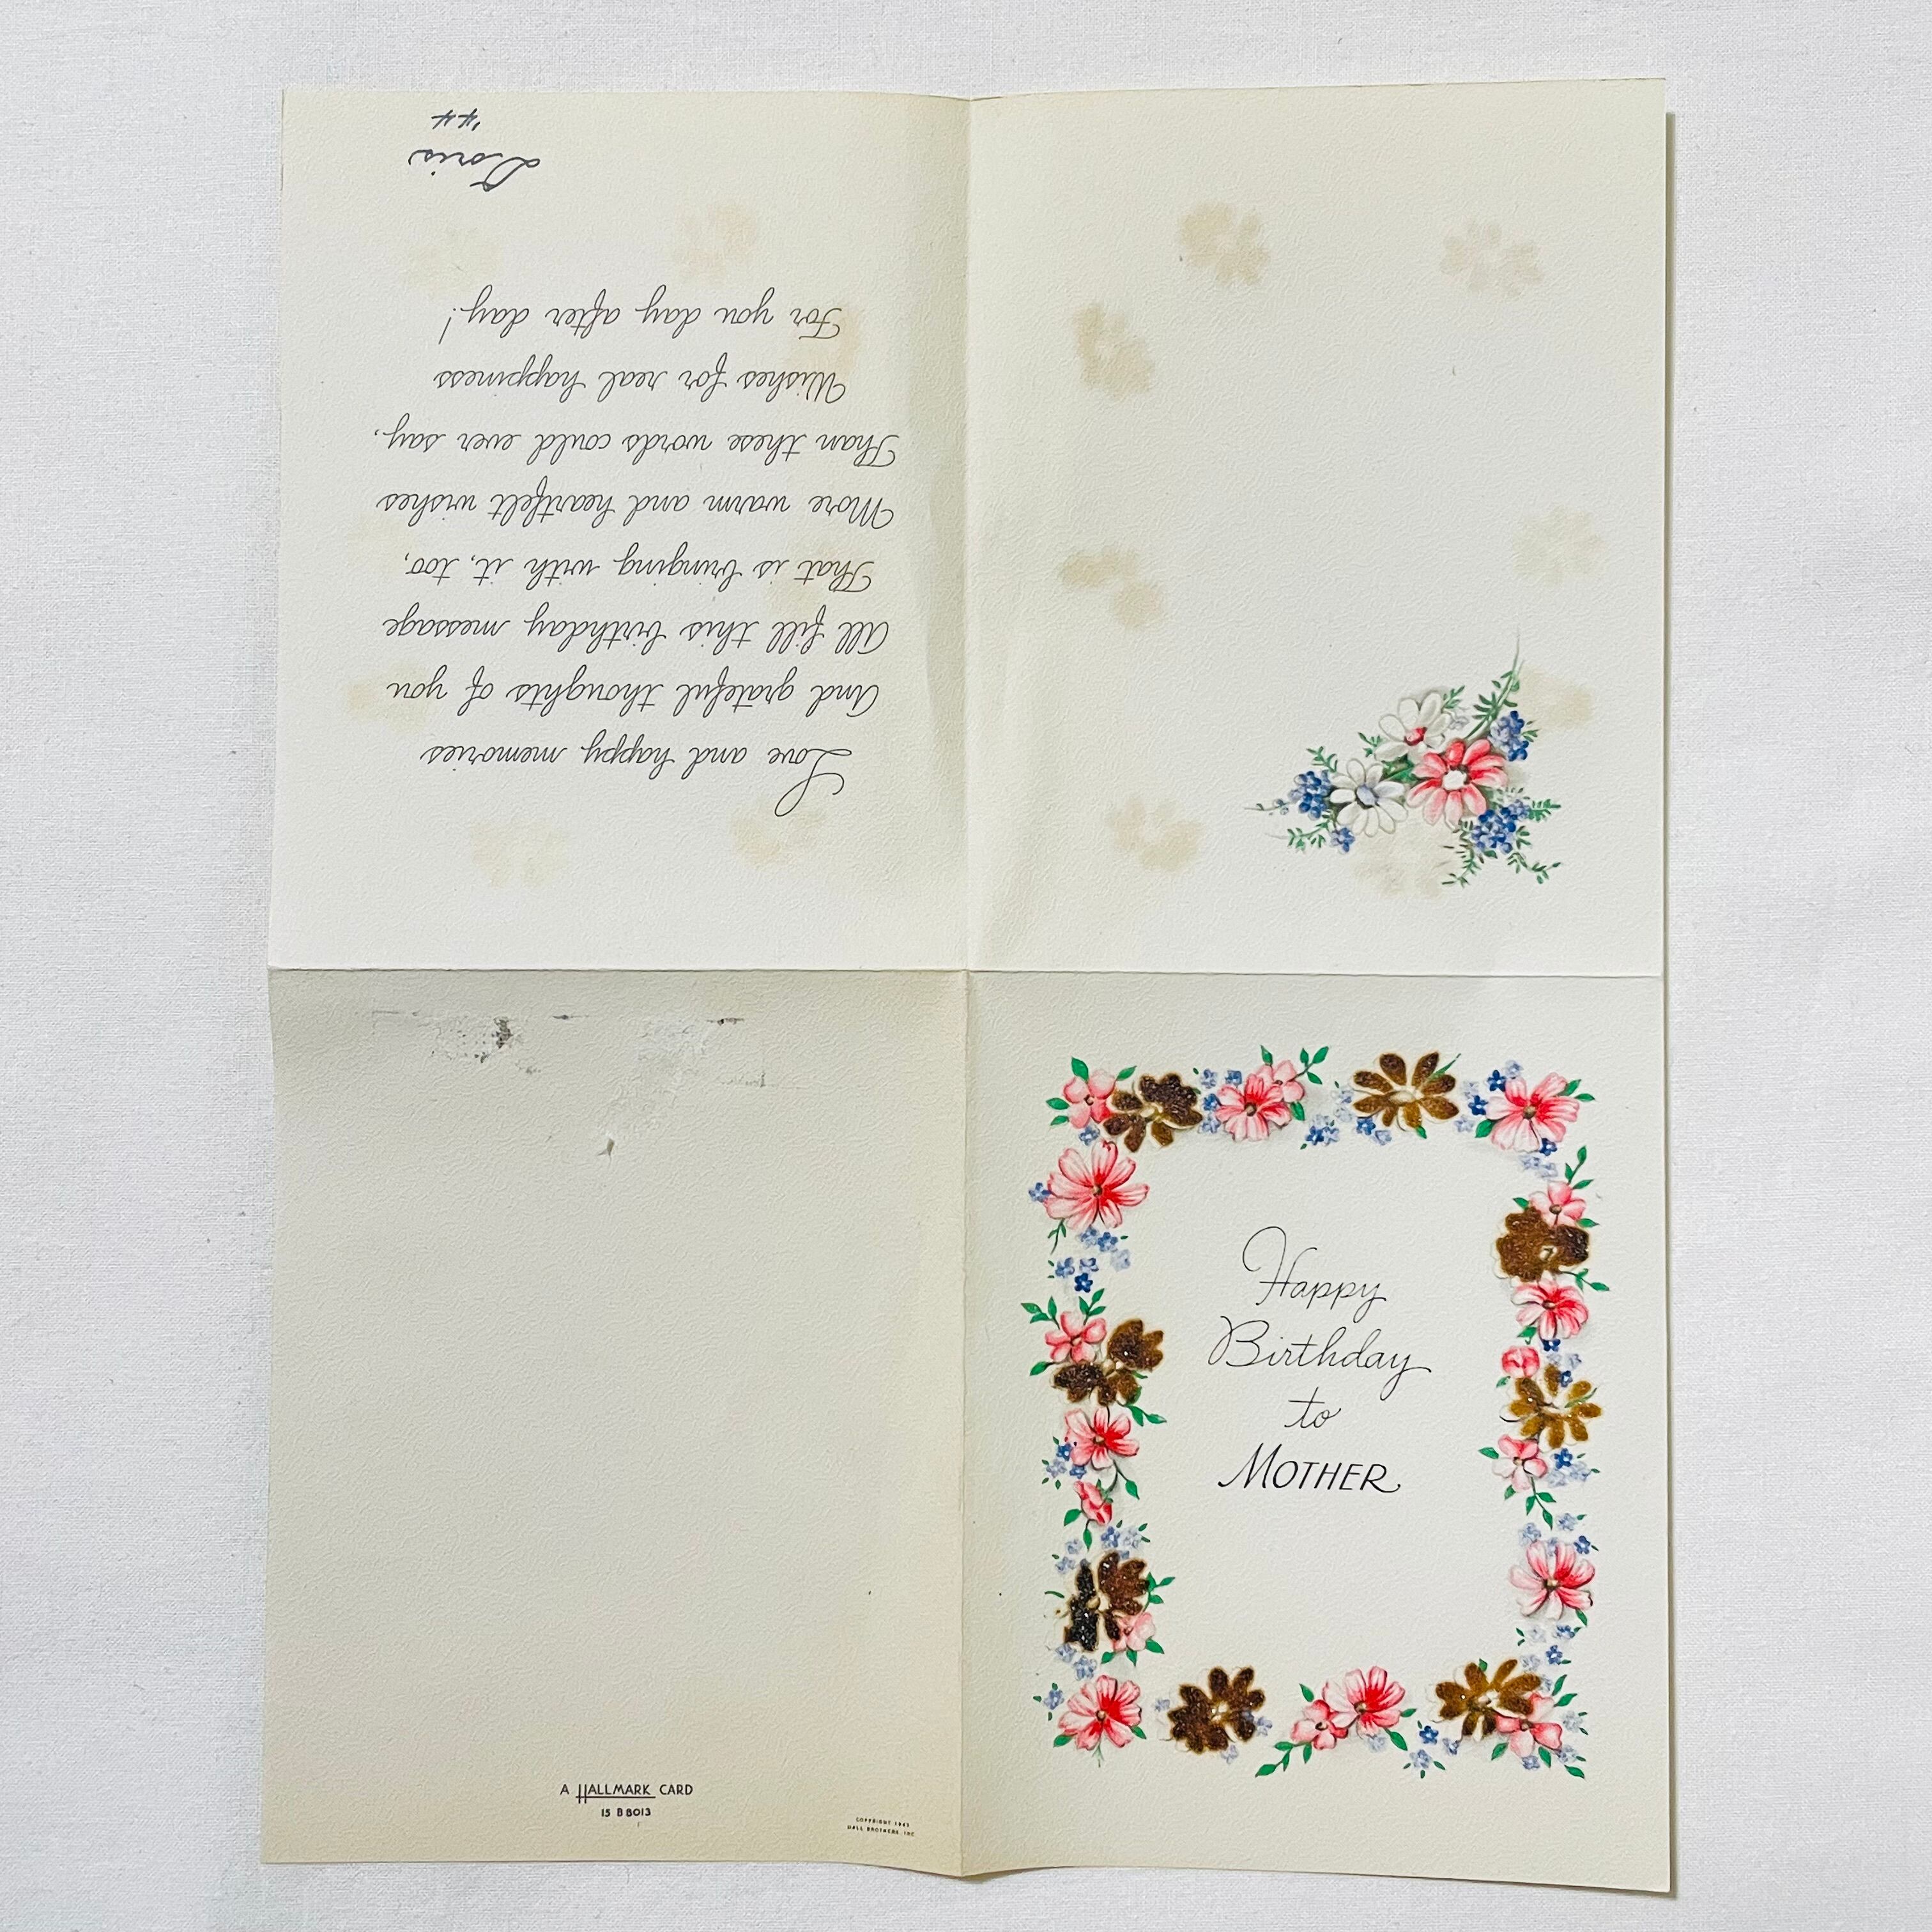 Happy
Birthday
to
MOTHER
Love and happy memories
And grateful thoughts of you
All fill this birthday message
That is bringing with it, too,
More warm and heartfelt wishes
Than these words could ever say,
Wishes for real happiness
For you day after day!
Doris
'44
A HALLMARK CARD
15 B 8013
COPYRIGHT 1943
HALL BROTHERS, INC